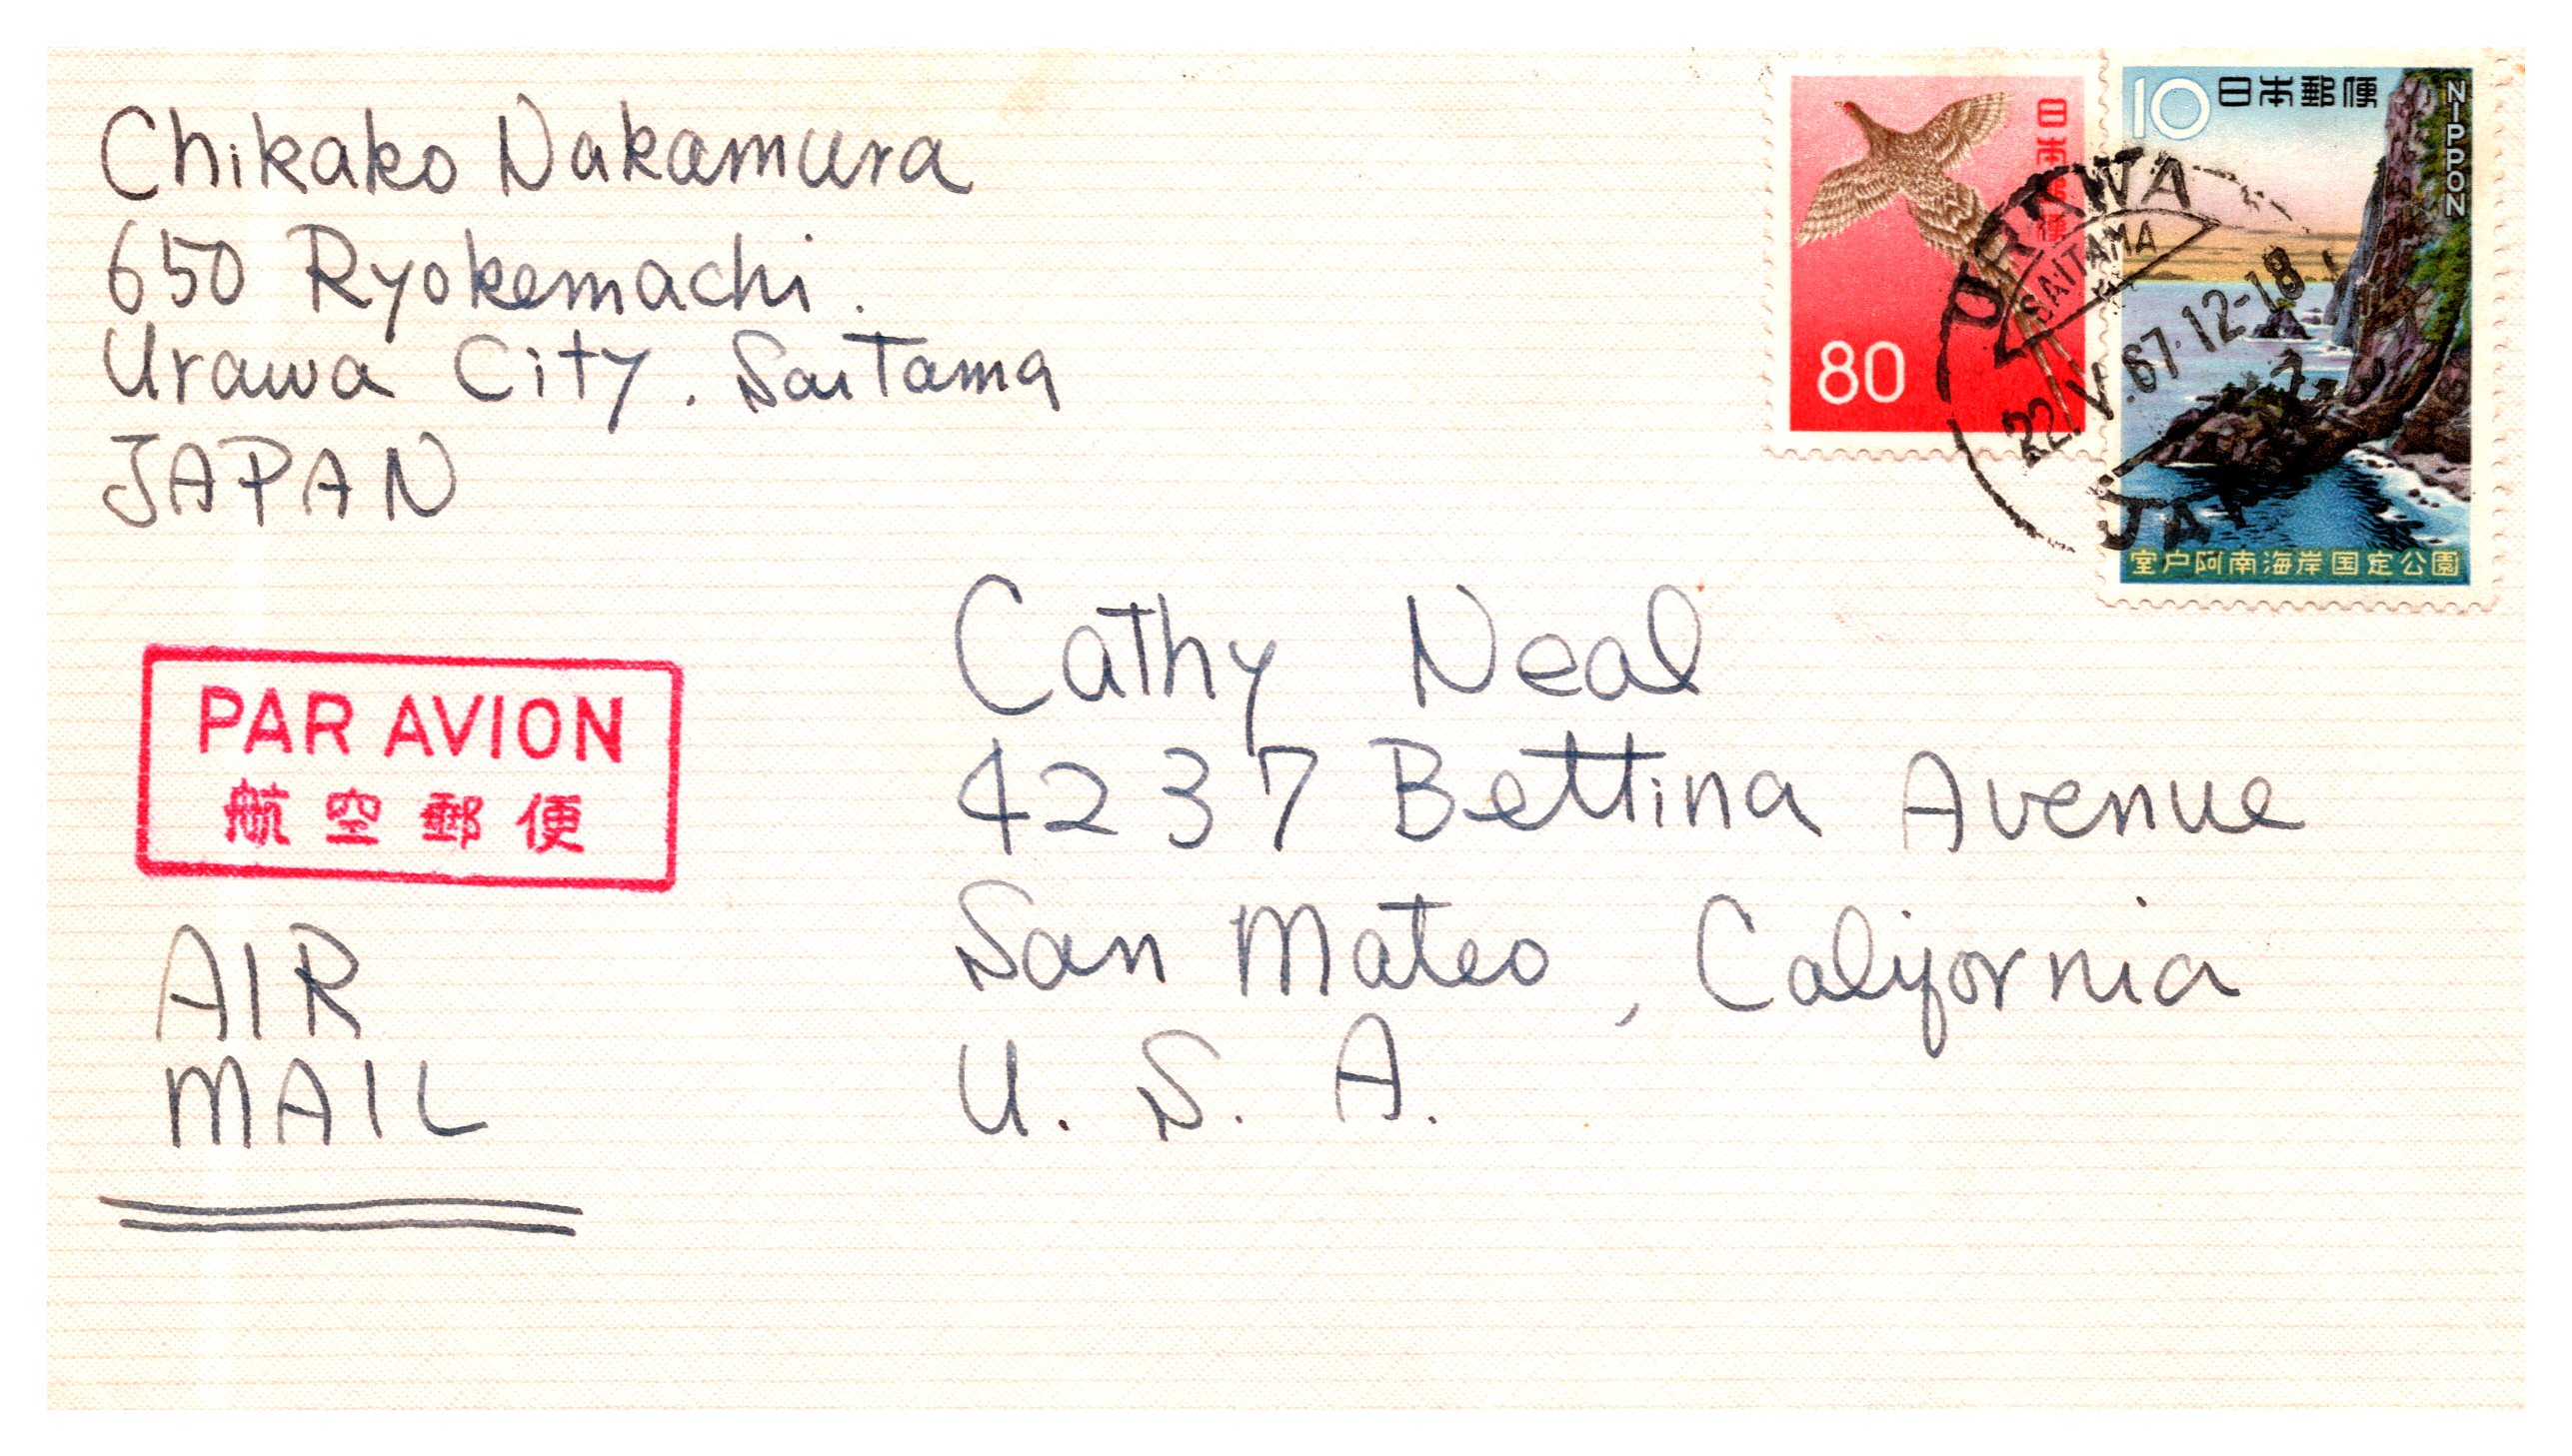 Chikako Nakamura
650 Ryokemachi.
Urawa City. Saitama
JAPAN
80
日本郵便
10 日本郵便
NIPPON
室戸阿南海岸国定公園
URAWA
SAITAMA
22.V.67.12-18
JAPAN
PAR AVION
航空郵便
AIR
MAIL
Cathy Neal
4237 Bettina Avenue
San Mateo, California
U. S. A.